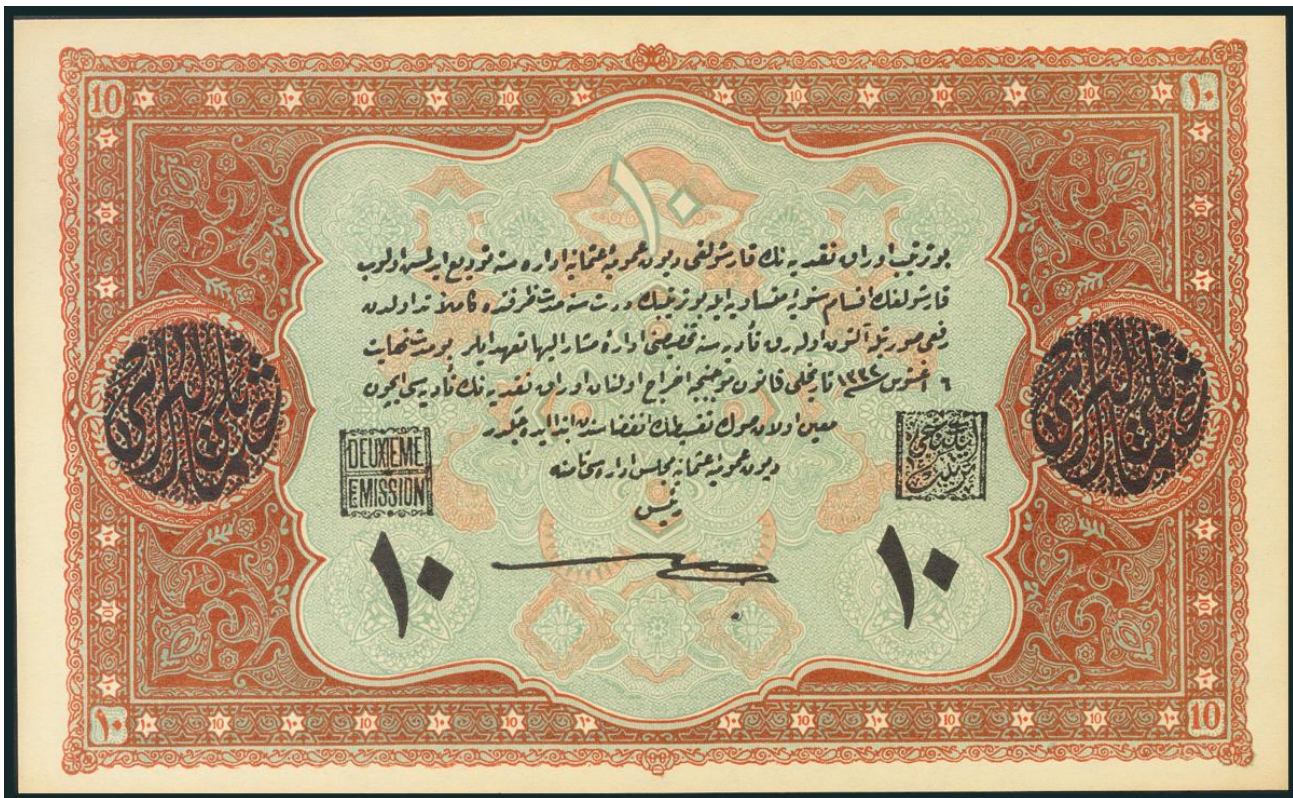 10 ١٠
١٠
بو ترتيب اوراق نقديه نك قارشولغی ديون عموميۀ عثمانيه اداره سنه توديع ايدلمش اولوب
قارشولغك اقسام سنويۀ متساويه ايله بو ترتيبك درت سنه مدت ظرفنده كاملاً تداولدن
رفعی صورتيله آلتون اوله رق تأديه سنه تخصيصنی ادارۀ مشار اليها تعهد ايلر بو مدت نهايت
٦ اغستوس ١٣٣٢ تاريخلی قانون موجبنجه اخراج اولنان اوراق نقديه نك تأديه سی ايچون
معين اولان صوك تقسيطك انقضاسندن ابتدا ايده جكدر
ديون عموميۀ عثمانيه مجلس اداره سی نامنه
رئيس
DEUXIEME
EMISSION
ايكنجی
ترتيب
١٠ ١٠
١٠ 10